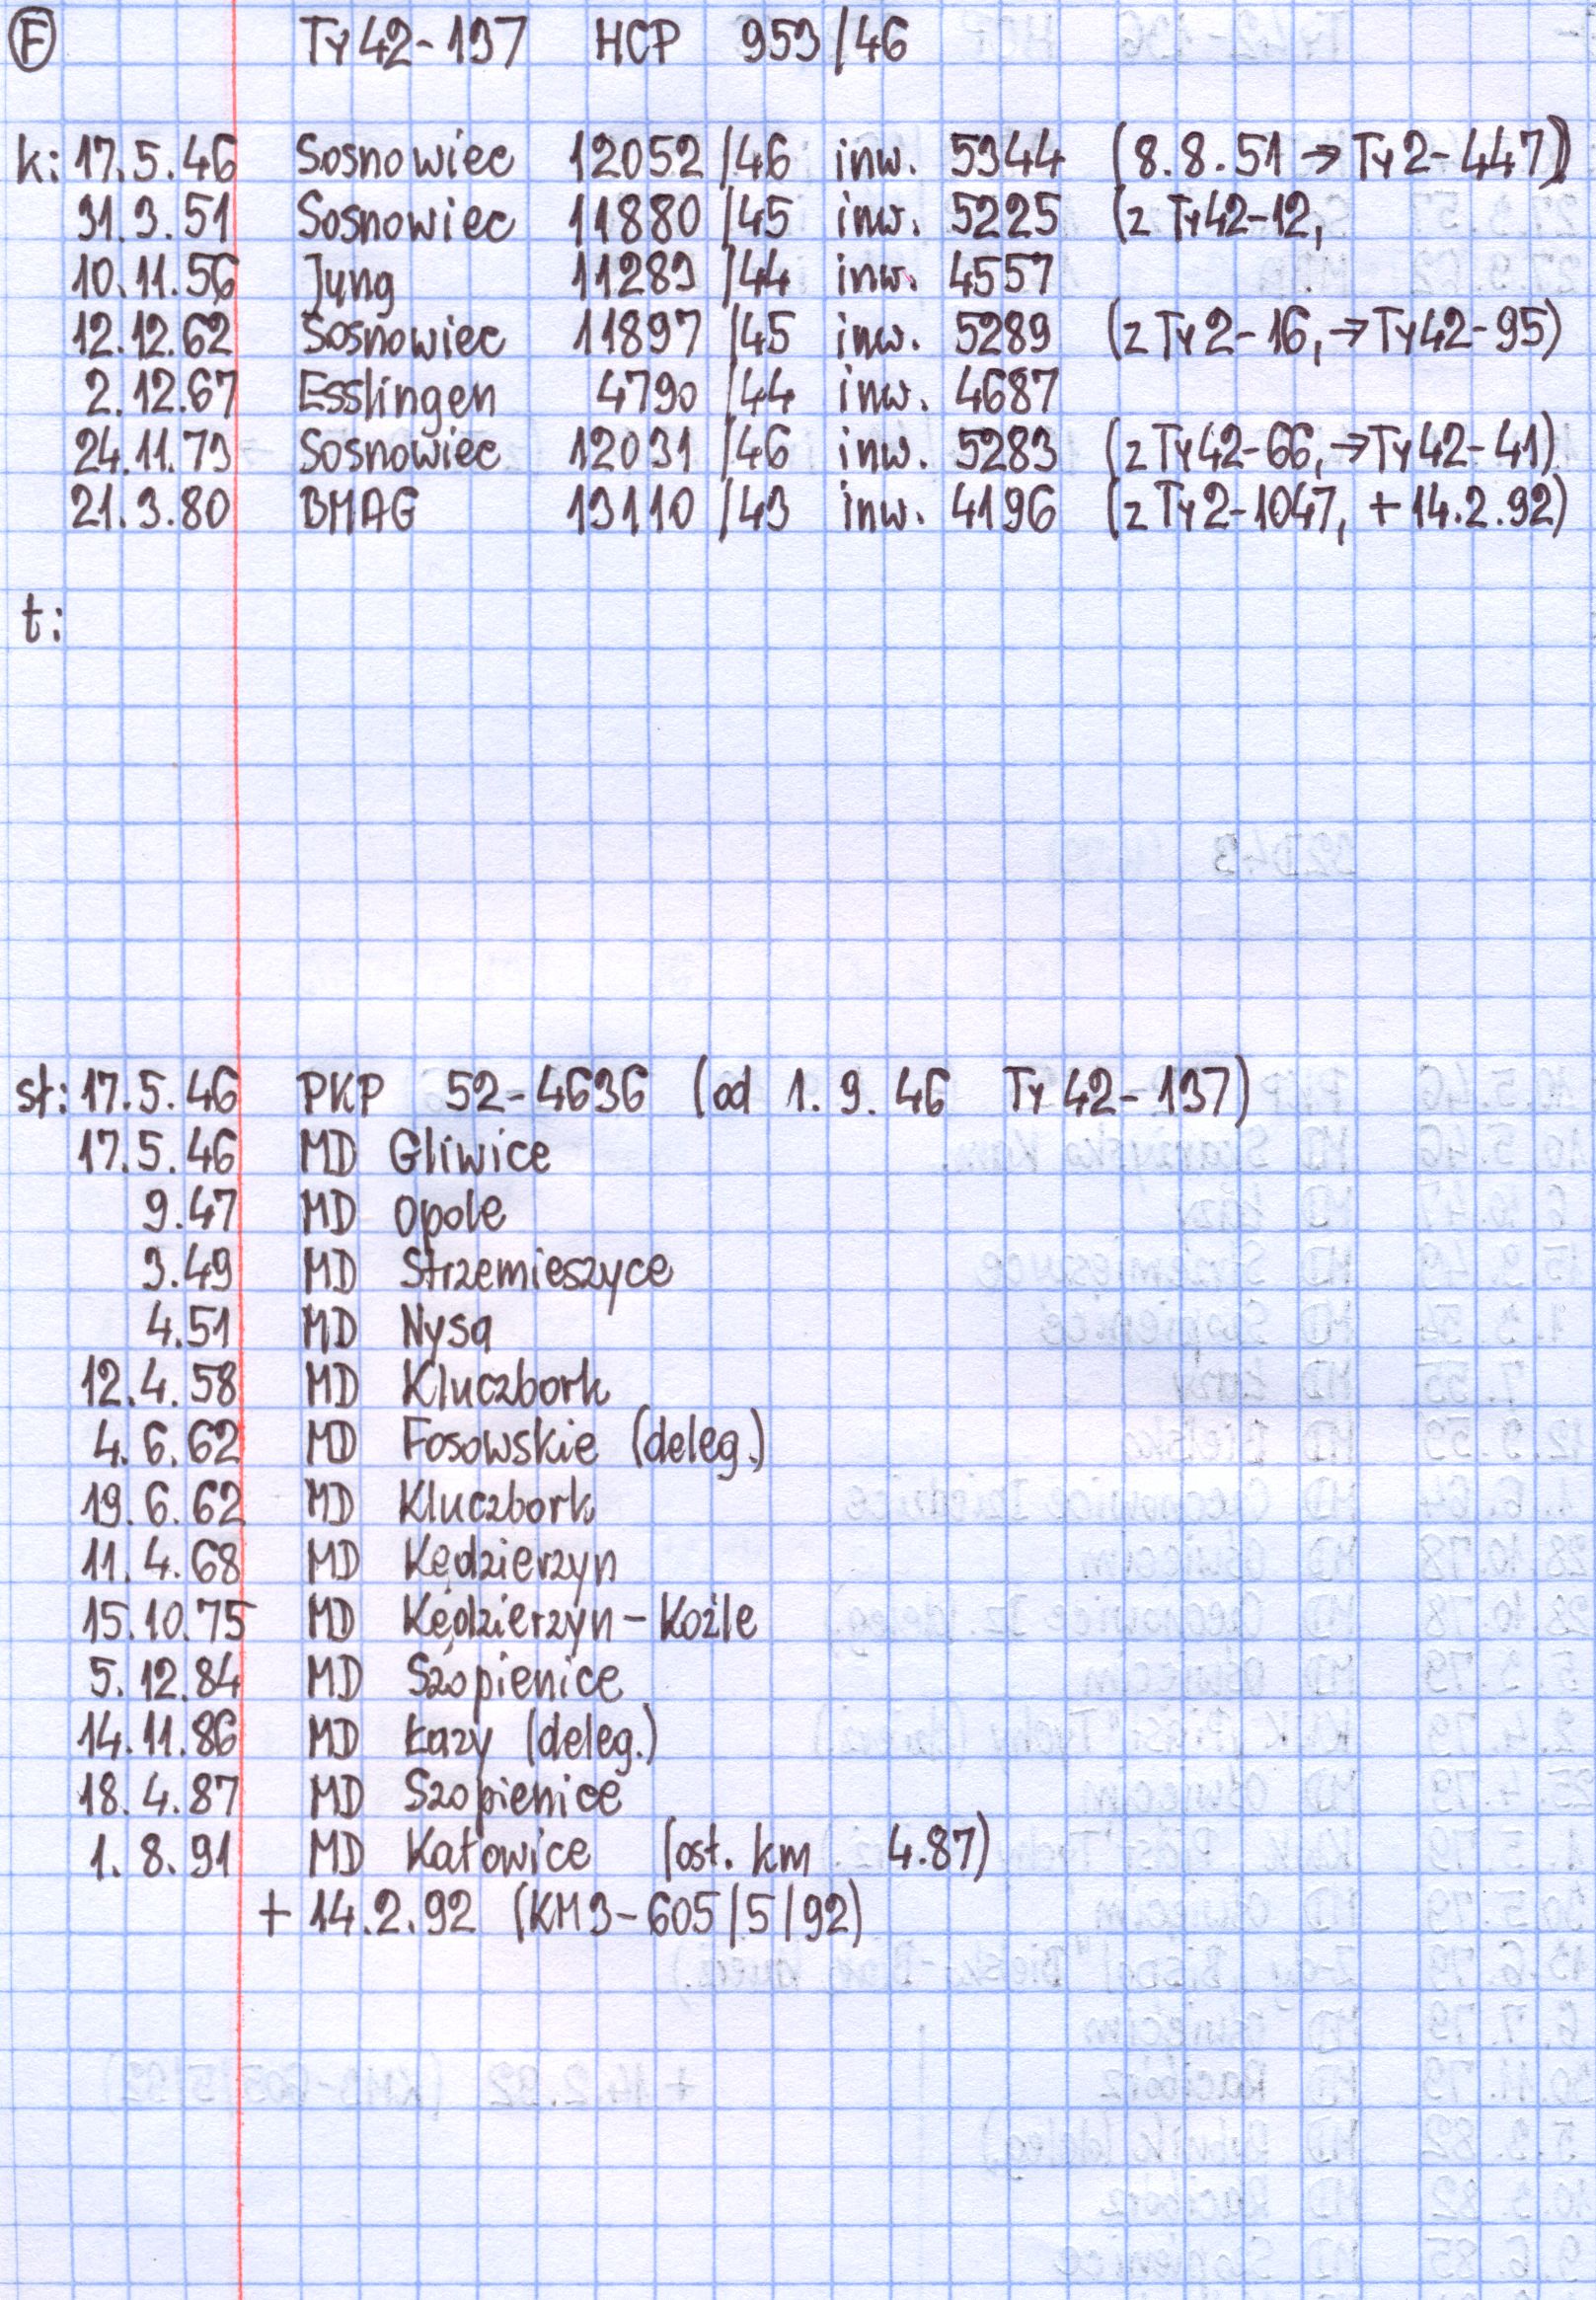 F Ty42-137 HCP 953/46
k: 17.5.46 Sosnowiec 12052/46 inw. 5344 (8.8.51 → Ty2-447)
31.3.51 Sosnowiec 11880/45 inw. 5225 (z Ty42-12,
10.11.56 Jung 11289/44 inw. 4557
12.12.62 Sosnowiec 11897/45 inw. 5289 (z Ty2-16, → Ty42-95)
2.12.67 Esslingen 4790/44 inw. 4687
24.11.73 Sosnowiec 12031/46 inw. 5283 (z Ty42-66, → Ty42-41)
21.3.80 BMAG 13110/43 inw. 4196 (z Ty2-1047, + 14.2.92)
t:
st: 17.5.46 PKP 52-4636 (od 1.9.46 Ty42-137)
17.5.46 MD Gliwice
9.47 MD Opole
3.49 MD Strzemieszyce
4.51 MD Nysa
12.4.58 MD Kluczbork
4.6.62 MD Fosowskie (deleg.)
19.6.62 MD Kluczbork
11.4.68 MD Kędzierzyn
15.10.75 MD Kędzierzyn-Koźle
5.12.84 MD Szopienice
14.11.86 MD Łazy (deleg.)
18.4.87 MD Szopienice
1.8.91 MD Katowice (ost. km 4.87)
+ 14.2.92 (KM3-605/5/92)